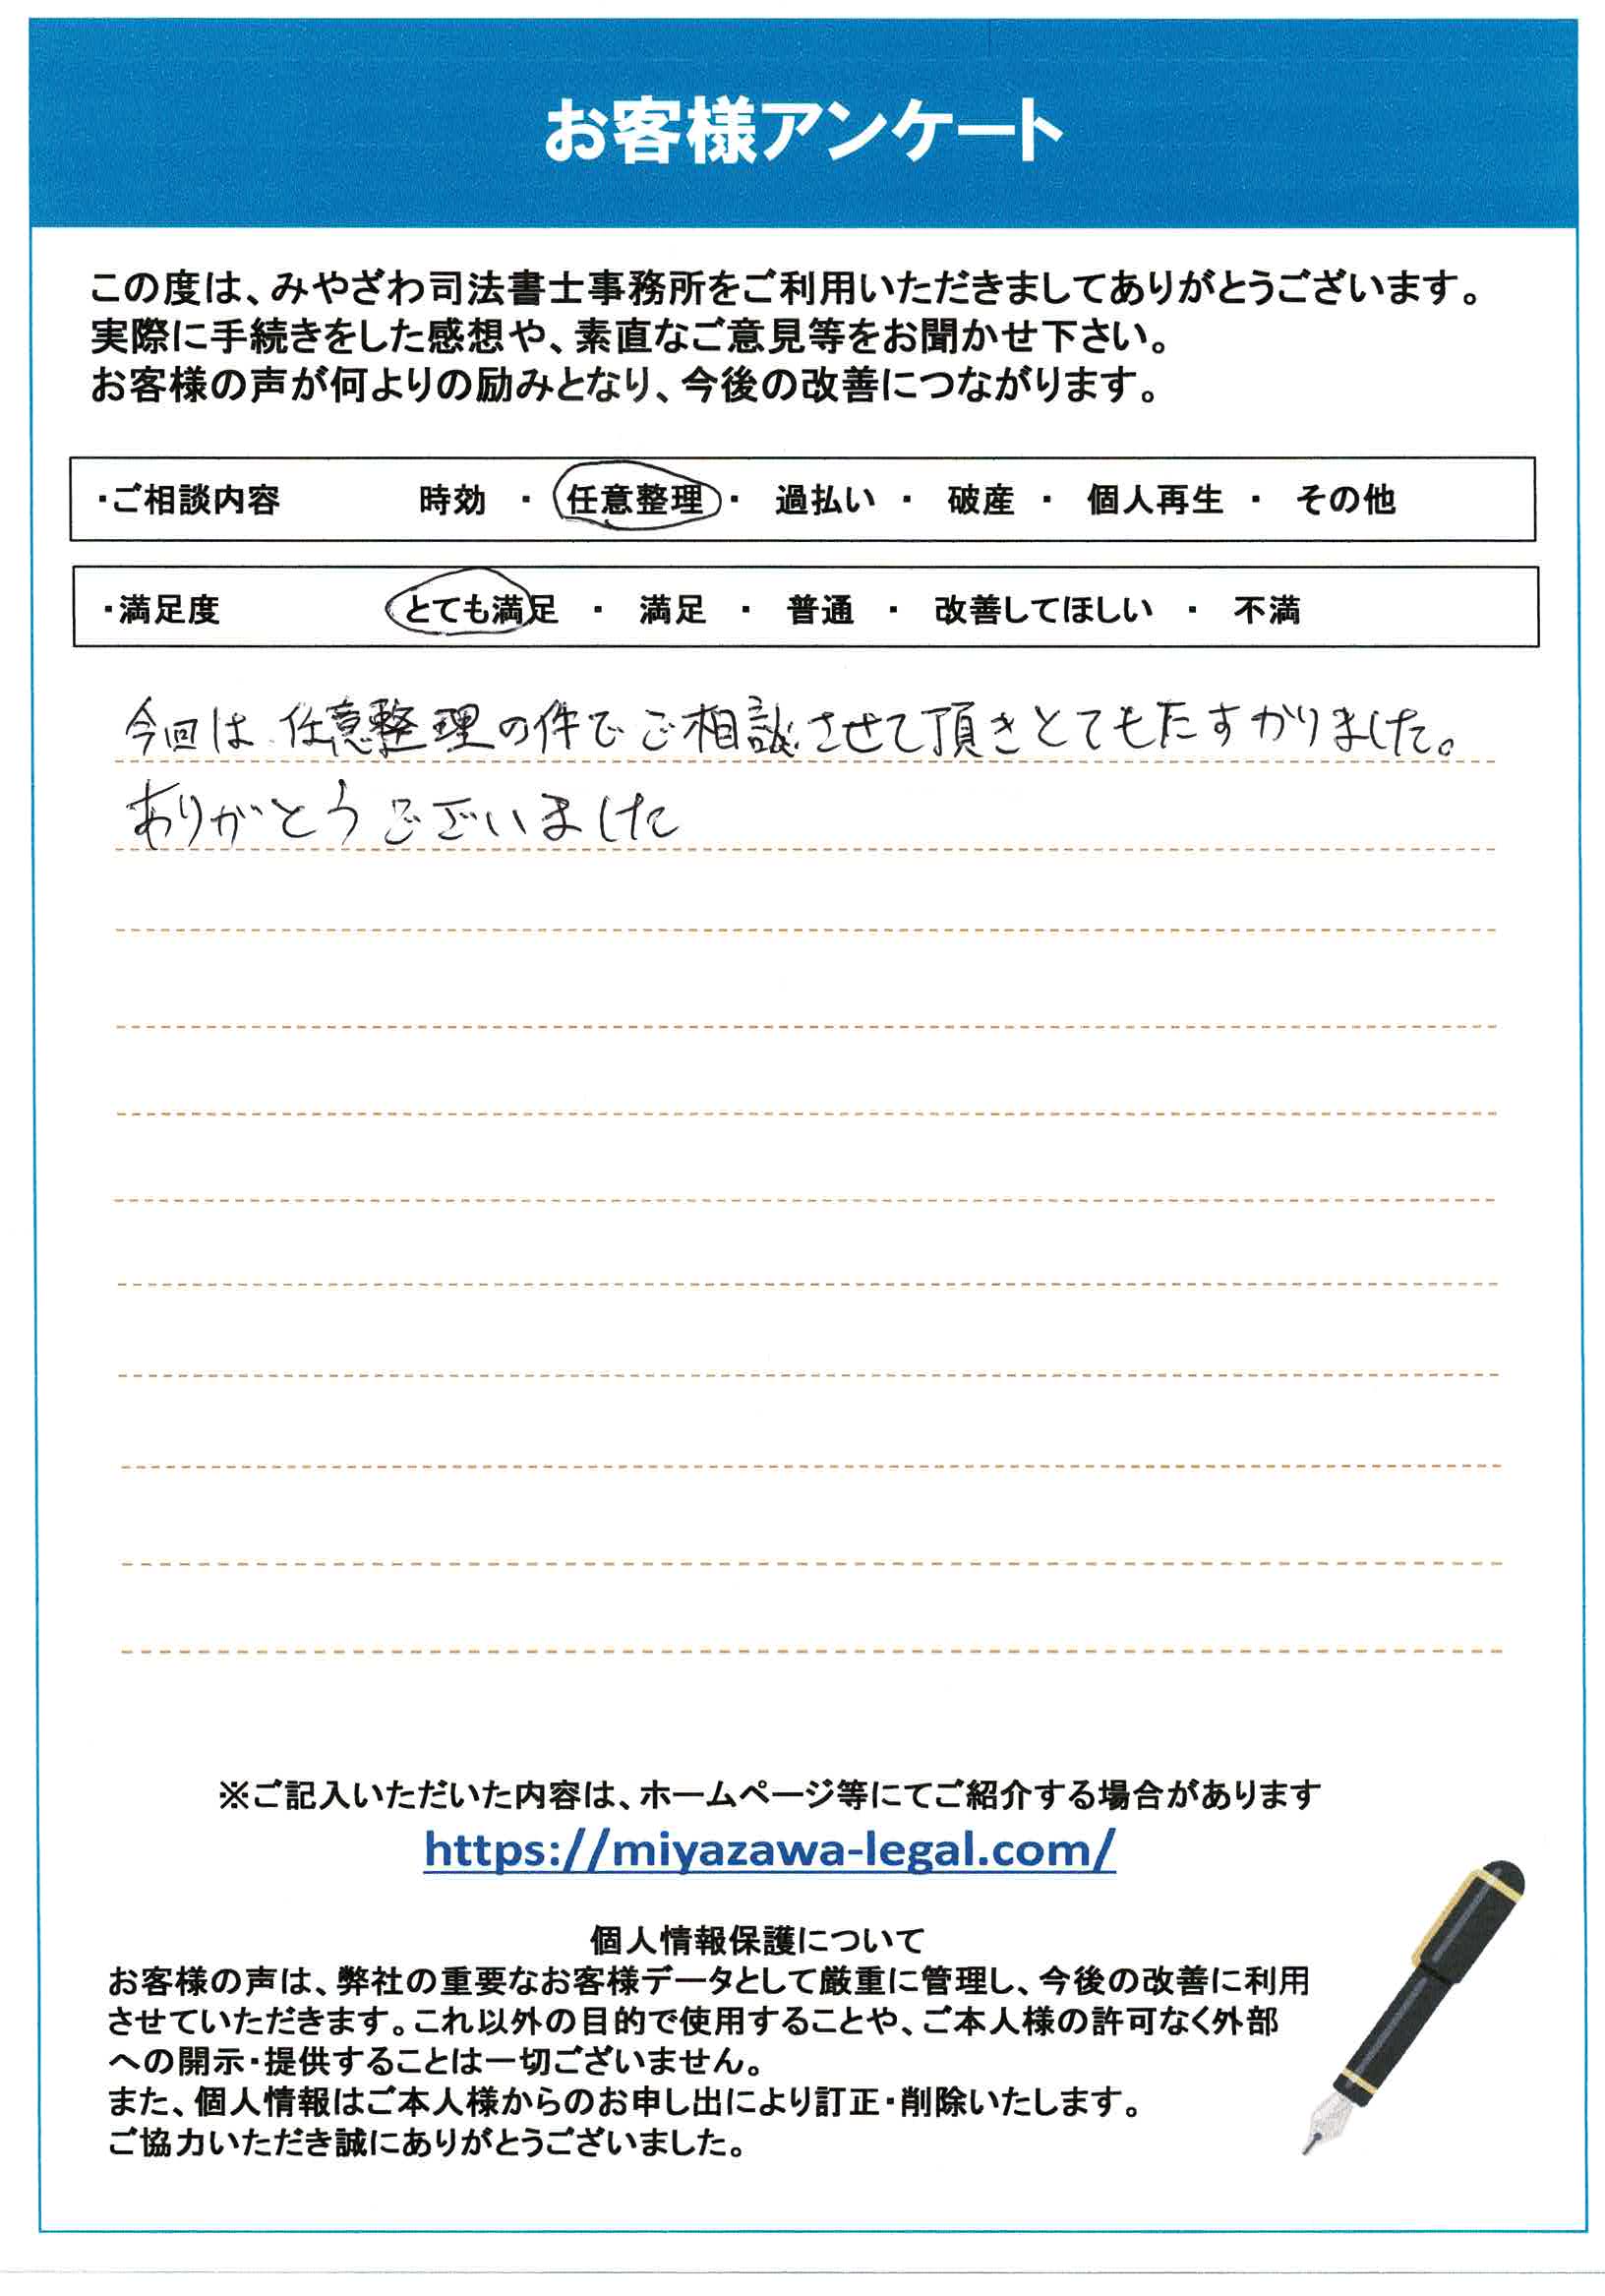 お客様アンケート
この度は、みやざわ司法書士事務所をご利用いただきましてありがとうございます。
実際に手続きをした感想や、素直なご意見等をお聞かせ下さい。
お客様の声が何よりの励みとなり、今後の改善につながります。
・ご相談内容 時効 ・ 任意整理 ・ 過払い ・ 破産 ・ 個人再生 ・ その他
・満足度 とても満足 ・ 満足 ・ 普通 ・ 改善してほしい ・ 不満
今回は、任意整理の件でご相談させて頂きとてもたすかりました。
ありがとうございました
※ご記入いただいた内容は、ホームページ等にてご紹介する場合があります
https://miyazawa-legal.com/
個人情報保護について
お客様の声は、弊社の重要なお客様データとして厳重に管理し、今後の改善に利用
させていただきます。これ以外の目的で使用することや、ご本人様の許可なく外部
への開示・提供することは一切ございません。
また、個人情報はご本人様からのお申し出により訂正・削除いたします。
ご協力いただき誠にありがとうございました。